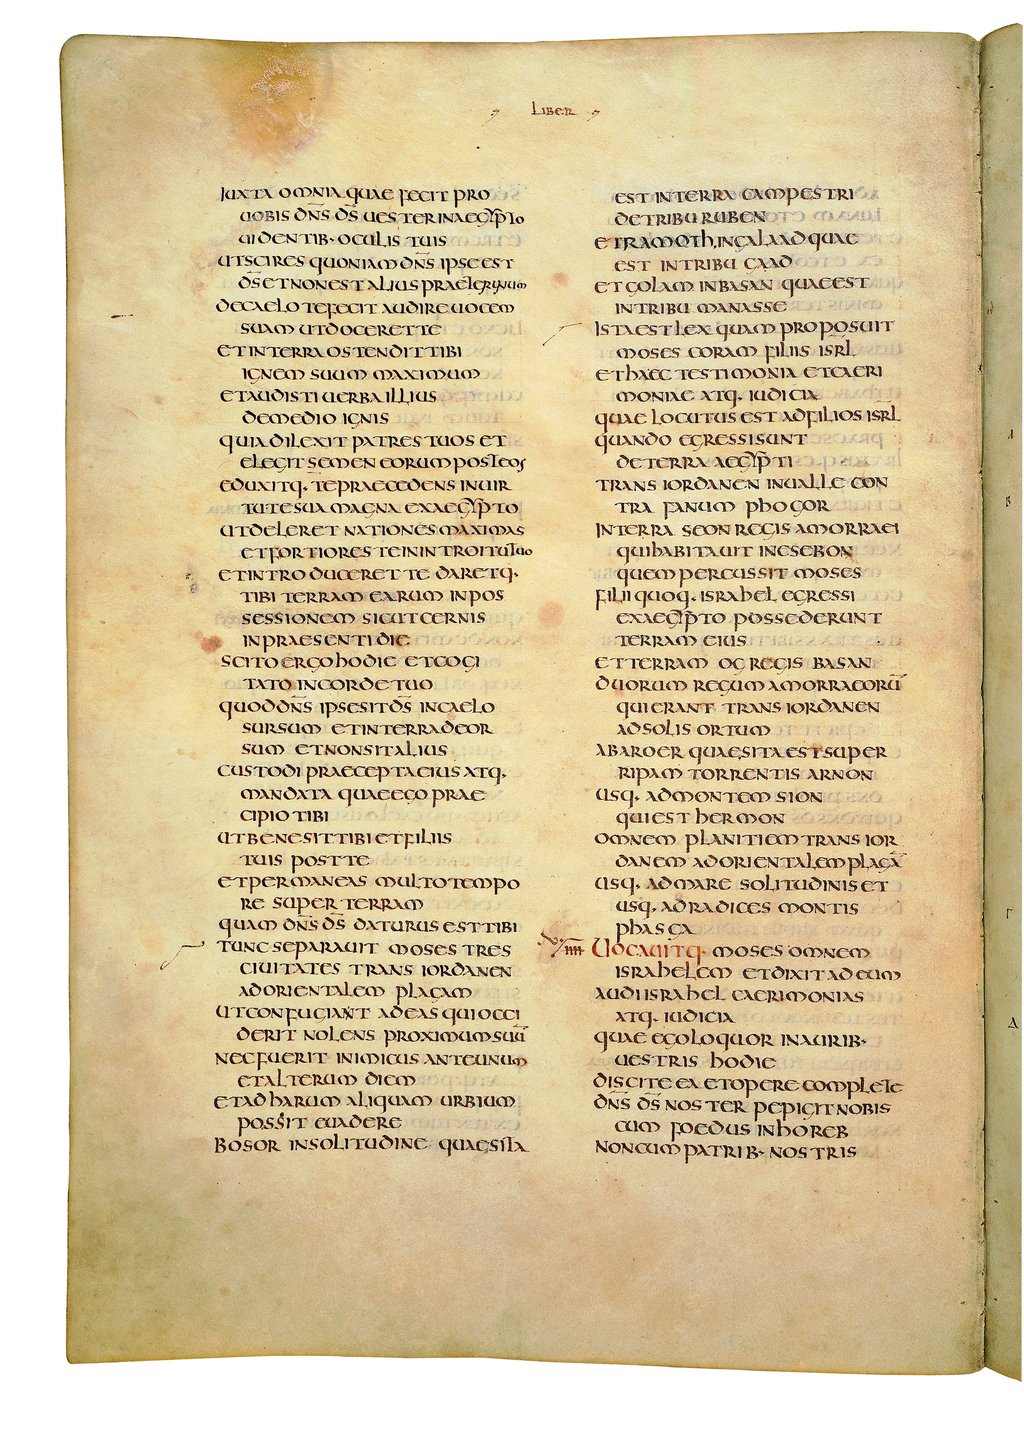 LIBER
IUXTA OMNIA QUAE FECIT PRO
UOBIS DN̅S D̅S UESTER IN AEGYPTO
UIDENTIB· OCULIS TUIS
UT SCIRES QUONIAM DN̅S IPSE EST
D̅S ET NON EST ALIUS PRAETER UNUM
DE CAELO TE FECIT AUDIRE UOCEM
SUAM UT DOCERET TE
ET IN TERRA OSTENDIT TIBI
IGNEM SUUM MAXIMUM
ET AUDISTI UERBA ILLIUS
DE MEDIO IGNIS
QUIA DILEXIT PATRES TUOS ET
ELEGIT SEMEN EORUM POST EOS
EDUXITQ· TE PRAECEDENS IN UIR
TUTE SUA MAGNA EX AEGYPTO
UT DELERET NATIONES MAXIMAS
ET FORTIORES TE IN INTROITU TUO
ET INTRODUCERET TE DARETQ·
TIBI TERRAM EARUM IN POS
SESSIONEM SICUT CERNIS
IN PRAESENTI DIE
SCITO ERGO HODIE ET COGI
TATO IN CORDE TUO
QUOD DN̅S IPSE SIT D̅S IN CAELO
SURSUM ET IN TERRA DEOR
SUM ET NON SIT ALIUS
CUSTODI PRAECEPTA EIUS ATQ·
MANDATA QUAE EGO PRAE
CIPIO TIBI
UT BENE SIT TIBI ET FILIIS
TUIS POST TE
ET PERMANEAS MULTO TEMPO
RE SUPER TERRAM
QUAM DN̅S D̅S DATURUS EST TIBI
TUNC SEPARAUIT MOSES TRES
CIUITATES TRANS IORDANEN
AD ORIENTALEM PLAGAM
UT CONFUGIANT AD EAS QUI OCCI
DERIT NOLENS PROXIMUM SUU̅
NEC FUERIT INIMICUS ANTE UNUM
ET ALTERUM DIEM
ET AD HARUM ALIQUAM URBIUM
POSSIT EUADERE
BOSOR IN SOLITUDINE QUAE SITA
EST IN TERRA CAMPESTRI
DE TRIBU RUBEN
ET RAMOTH IN GALAAD QUAE
EST IN TRIBU GAAD
ET GOLAM IN BASAN QUAE EST
IN TRIBU MANASSE
ISTA EST LEX QUAM PROPOSUIT
MOSES CORAM FILIIS ISRL̅
ET HAEC TESTIMONIA ET CAERI
MONIAE ATQ· IUDICIA
QUAE LOCUTUS EST AD FILIOS ISRL̅
QUANDO EGRESSI SUNT
DE TERRA AEGYPTI
TRANS IORDANEN IN UALLE CON
TRA FANUM PHOGOR
IN TERRA SEON REGIS AMORRAEI
QUI HABITAUIT IN ESEBON
QUEM PERCUSSIT MOSES
FILII QUOQ· ISRAHEL EGRESSI
EX AEGYPTO POSSEDERUNT
TERRAM EIUS
ET TERRAM OG REGIS BASAN
DUORUM REGUM AMORRAEORU̅
QUI ERANT TRANS IORDANEN
AD SOLIS ORTUM
AB AROER QUAE SITA EST SUPER
RIPAM TORRENTIS ARNON
USQ· AD MONTEM SION
QUI EST HERMON
OMNEM PLANITIEM TRANS IOR
DANEM AD ORIENTALEM PLAGA̅
USQ· AD MARE SOLITUDINIS ET
USQ· AD RADICES MONTIS
PHASGA
V̅IIII UOCAUITQ· MOSES OMNEM
ISRAHELEM ET DIXIT AD EUM
AUDI ISRAHEL CAERIMONIAS
ATQ· IUDICIA
QUAE EGO LOQUOR IN AURIB·
UESTRIS HODIE
DISCITE EA ET OPERE COMPLETE
DN̅S D̅S NOSTER PEPIGIT NOBIS
CUM FOEDUS IN HOREB
NON CUM PATRIB· NOSTRIS